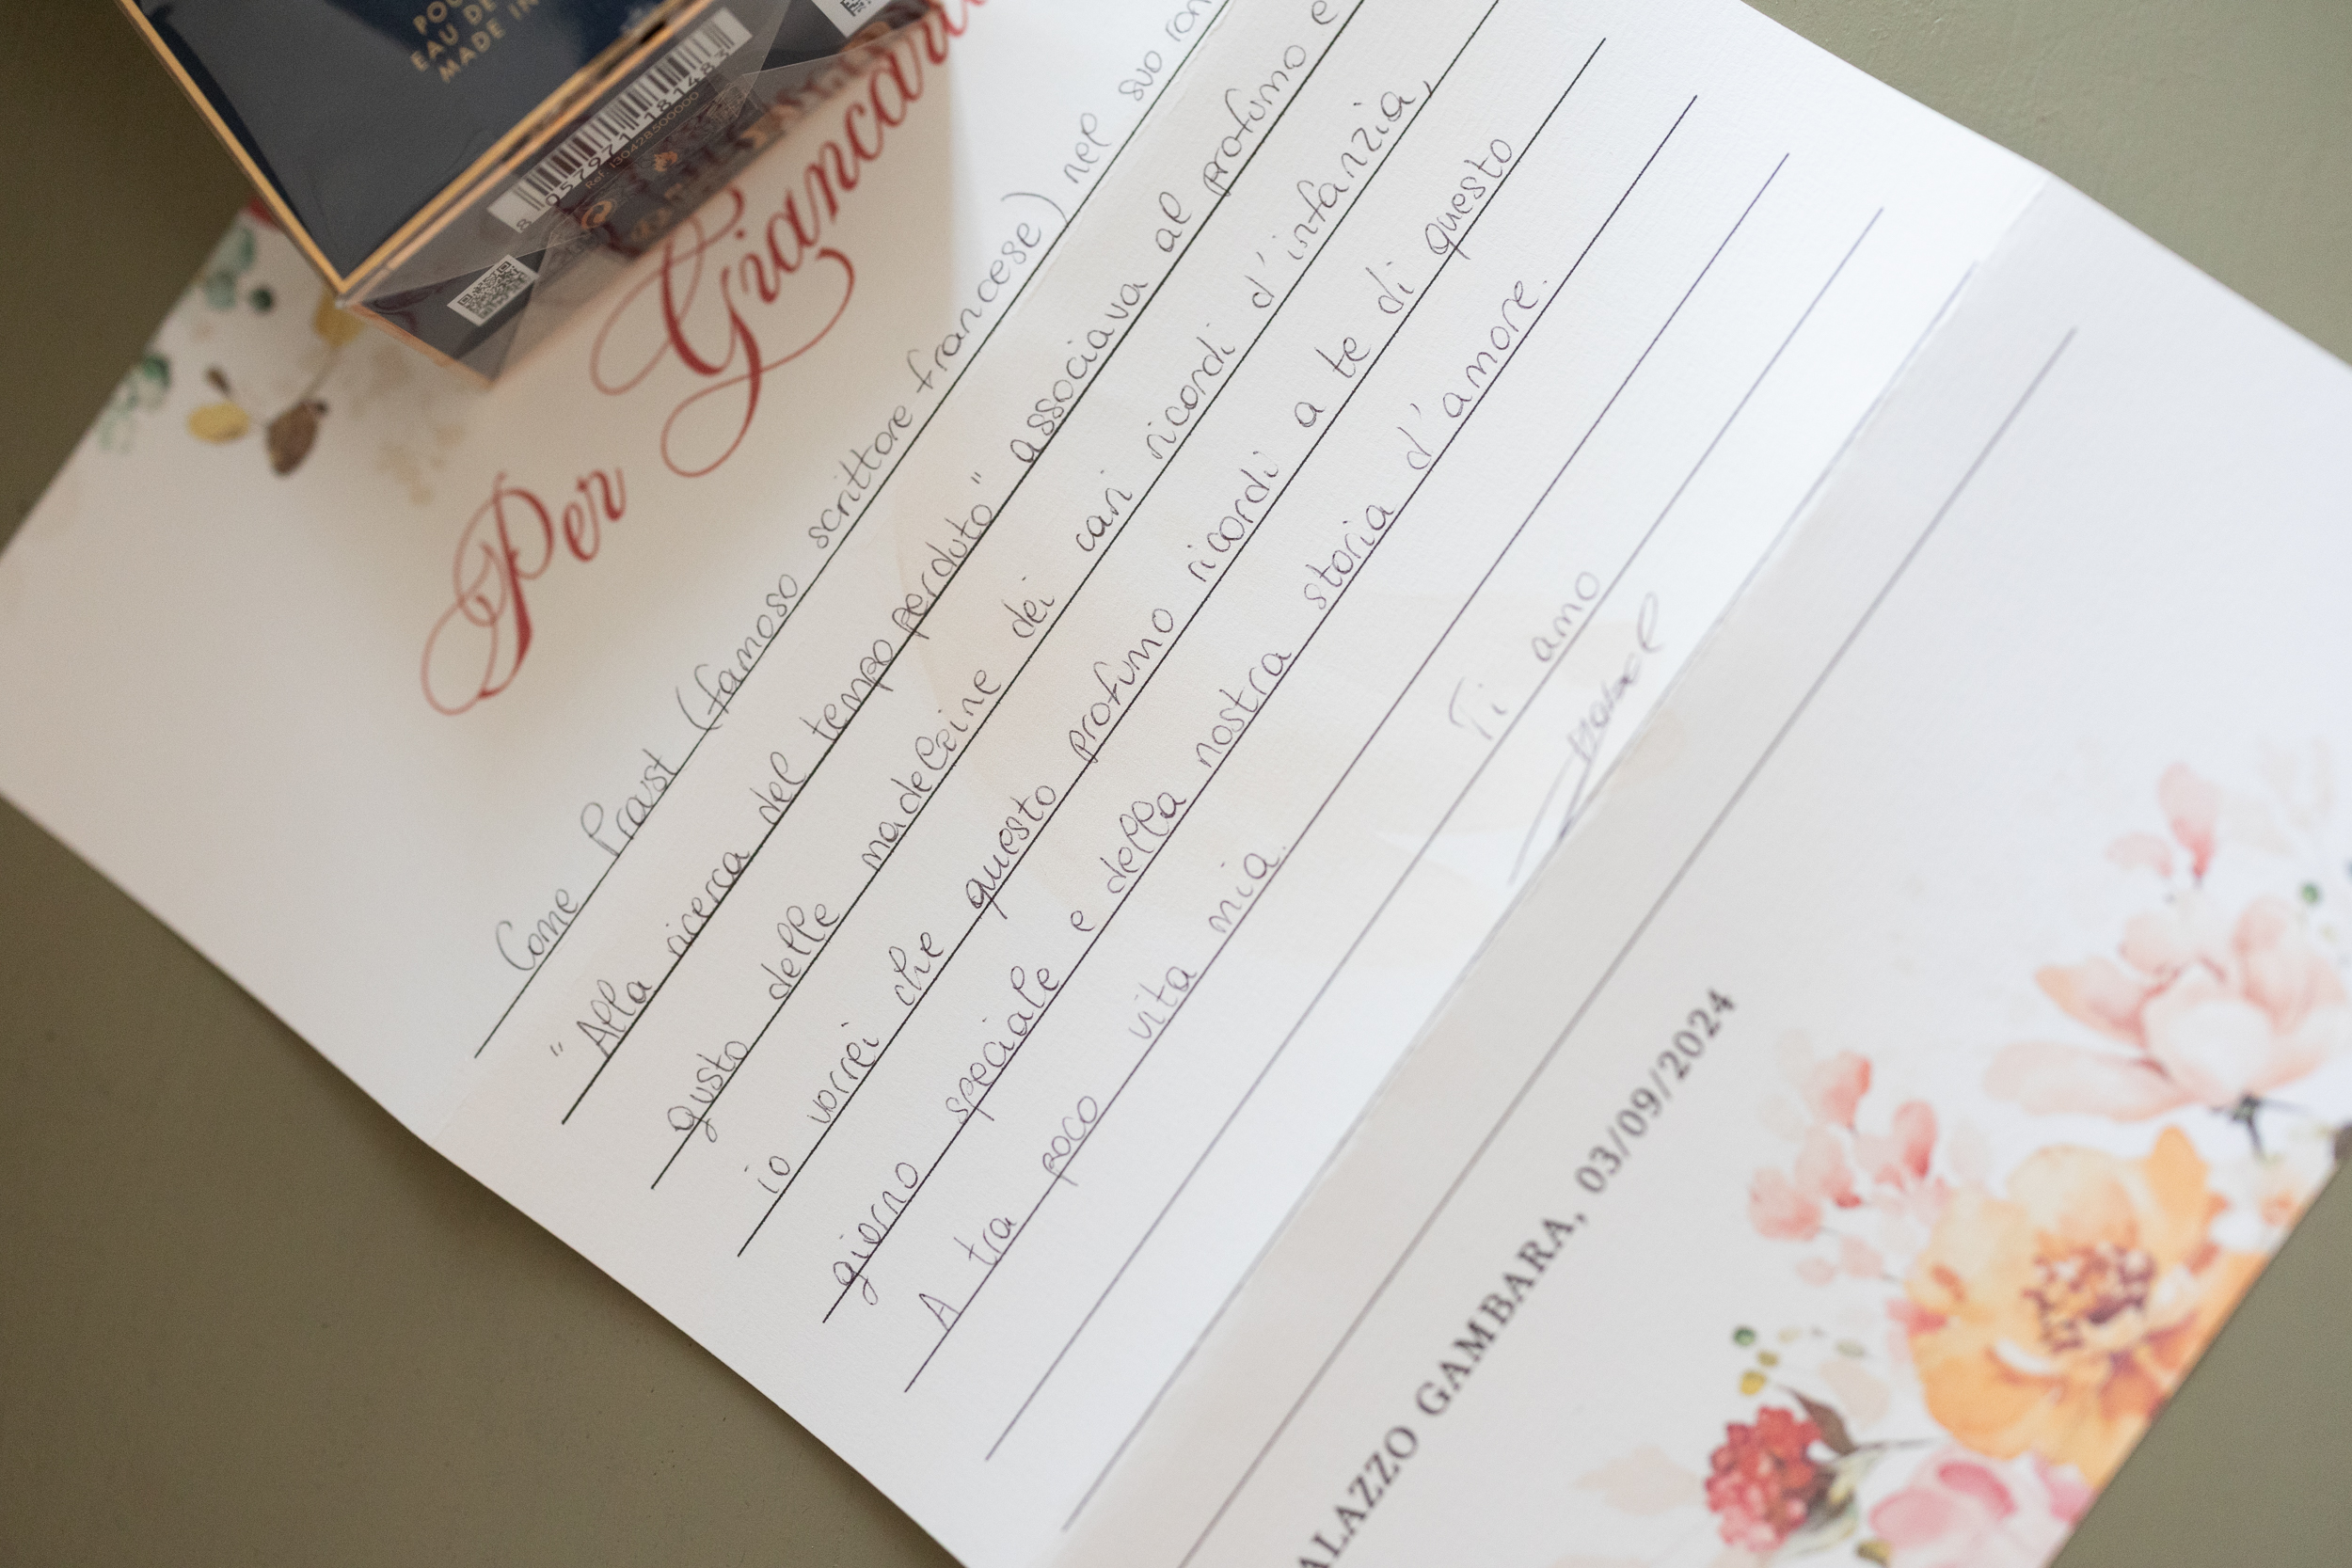 POU
EAU DE
MADE IN
8 057971 181483
Ref. 130428500000
Per Giancarl
Come Proust (famoso scrittore francese) nel suo rom
"Alla ricerca del tempo perduto" associava al profumo e
gusto delle madelaine dei cari ricordi d'infanzia,
io vorrei che questo profumo ricordi a te di questo
giorno speciale e della nostra storia d'amore.
A tra poco vita mia.
Ti amo
ALAZZO GAMBARA, 03/09/2024